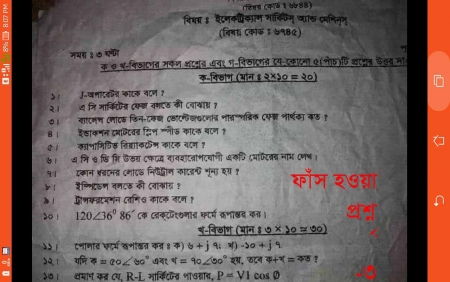 (বিষয় কোড : ৬৮৪৪)
বিষয় : ইলেকট্রিক্যাল সার্কিটস্ অ্যান্ড মেশিনস্
(বিষয় কোড : ৬৭৪৫)
সময় : ৩ ঘণ্টা
ক ও খ-বিভাগের সকল প্রশ্নের এবং গ-বিভাগের যে-কোনো ৫(পাঁচ)টি প্রশ্নের উত্তর দাও
ক-বিভাগ (মান : ২×১০ = ২০)
১। J-অপারেটর কাকে বলে ?
২। এ সি সার্কিটের ফেজ বলতে কী বোঝায় ?
৩। ব্যালেন্স লোডে তিন-ফেজ ভোল্টেজগুলোর পারস্পরিক ফেজ পার্থক্য কত ?
৪। ইন্ডাকশন মোটরের স্লিপ স্পীড কাকে বলে ?
৫। ক্যাপাসিটিভ রিয়্যাকটেন্স কাকে বলে ?
৬। এ সি ও ডি সি উভয় ক্ষেত্রে ব্যবহারোপযোগী একটি মোটরের নাম লেখ।
৭। কোন ধরনের লোডে নিউট্রাল কারেন্ট শূন্য হয় ?
৮। ইম্পিডেন্স বলতে কী বোঝায় ?
৯। ট্রান্সফরমেশন রেশিও কাকে বলে ?
১০। 120∠36° 86´ কে রেকট্যাংগুলার ফর্মে রূপান্তর কর।
খ-বিভাগ (মান : ৩ × ১০ = ৩০)
১১। পোলার ফর্মে রূপান্তর কর : ক) ৬ + j ৭; খ) -১০ + j ৭
১২। যদি ক = ৫০∠৬০° এবং খ = ৭০∠৩০° হয়, তবে ক+খ = কত ?
১৩। প্রমাণ কর যে, R-L সার্কিটের পাওয়ার, P = VI cos Ø
ফাঁস হওয়া
প্রশ্ন
8%
8:07 PM